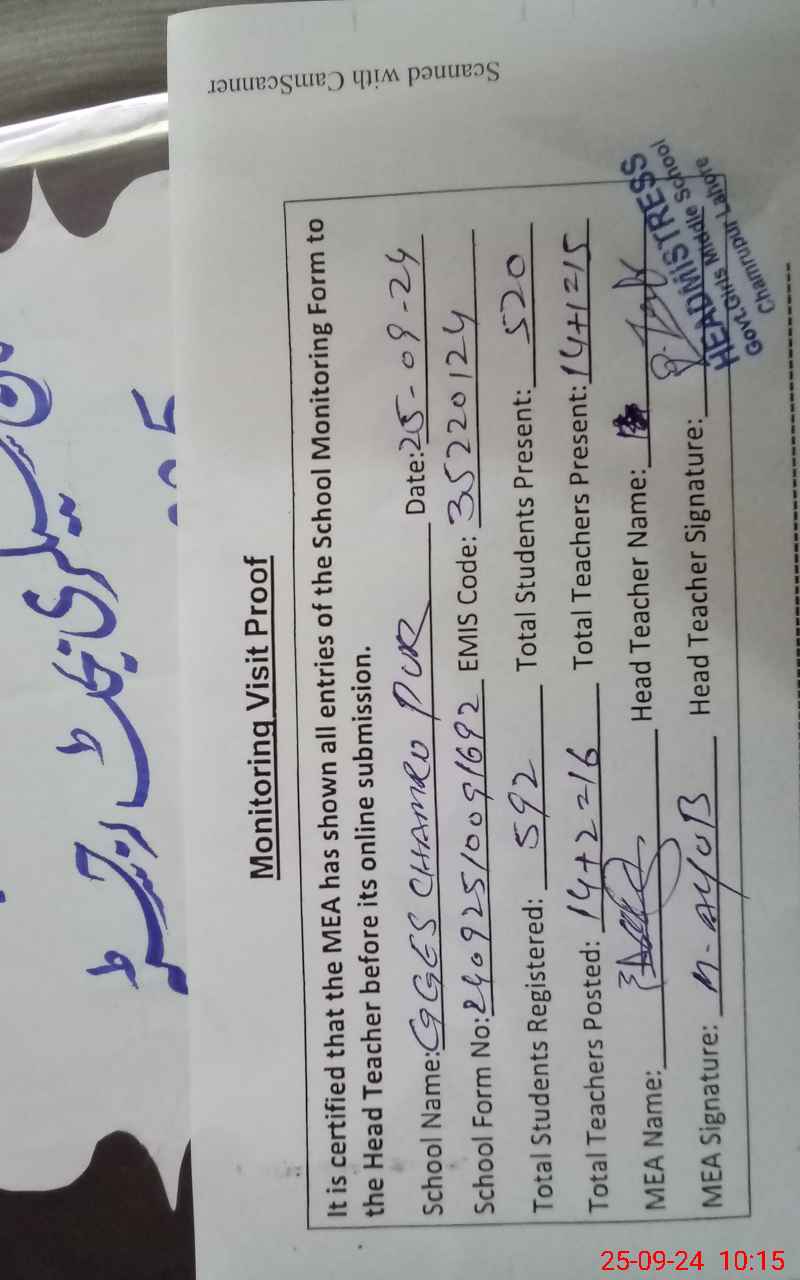 Scanned with CamScanner
Monitoring Visit Proof
It is certified that the MEA has shown all entries of the School Monitoring Form to
the Head Teacher before its online submission.
School Name: GGES CHAMRU PUR Date: 25-09-24
School Form No: 24092510091692 EMIS Code: 35220124
Total Students Registered: 592 Total Students Present: 520
Total Teachers Posted: 14+2=16 Total Teachers Present: 14+1=15
MEA Name: Head Teacher Name:
MEA Signature: M. AYUB Head Teacher Signature:
HEADMISTRESS
Govt. Girls Middle School
Chamrupur Lahore
25-09-24 10:15